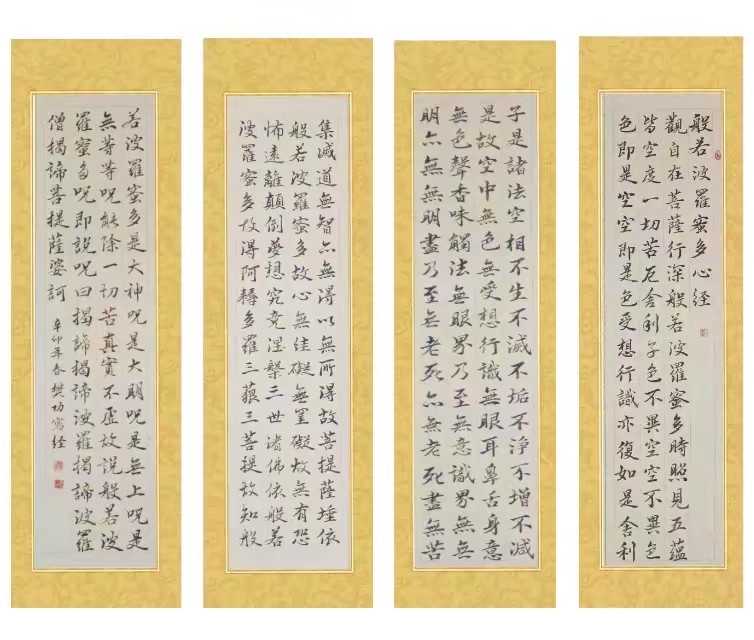 般若波羅蜜多心経
觀自在菩薩行深般若波羅蜜多時照見五蘊
皆空度一切苦厄舍利子色不異空空不異色
色即是空空即是色受想行識亦復如是舍利
子是諸法空相不生不滅不垢不淨不增不減
是故空中無色無受想行識無眼耳鼻舌身意
無色聲香味觸法無眼界乃至無意識界無無
明亦無無明盡乃至無老死亦無老死盡無苦
集滅道無智亦無得以無所得故菩提薩埵依
般若波羅蜜多故心無罣礙無罣礙故無有恐
怖遠離顛倒夢想究竟涅槃三世諸佛依般若
波羅蜜多故得阿耨多羅三藐三菩提故知般
若波羅蜜多是大神呪是大明呪是無上呪是
無等等呪能除一切苦真實不虛故説般若波
羅蜜多呪即説呪曰揭諦揭諦波羅揭諦波羅
僧揭諦菩提薩婆訶
辛卯年春樊功寫経